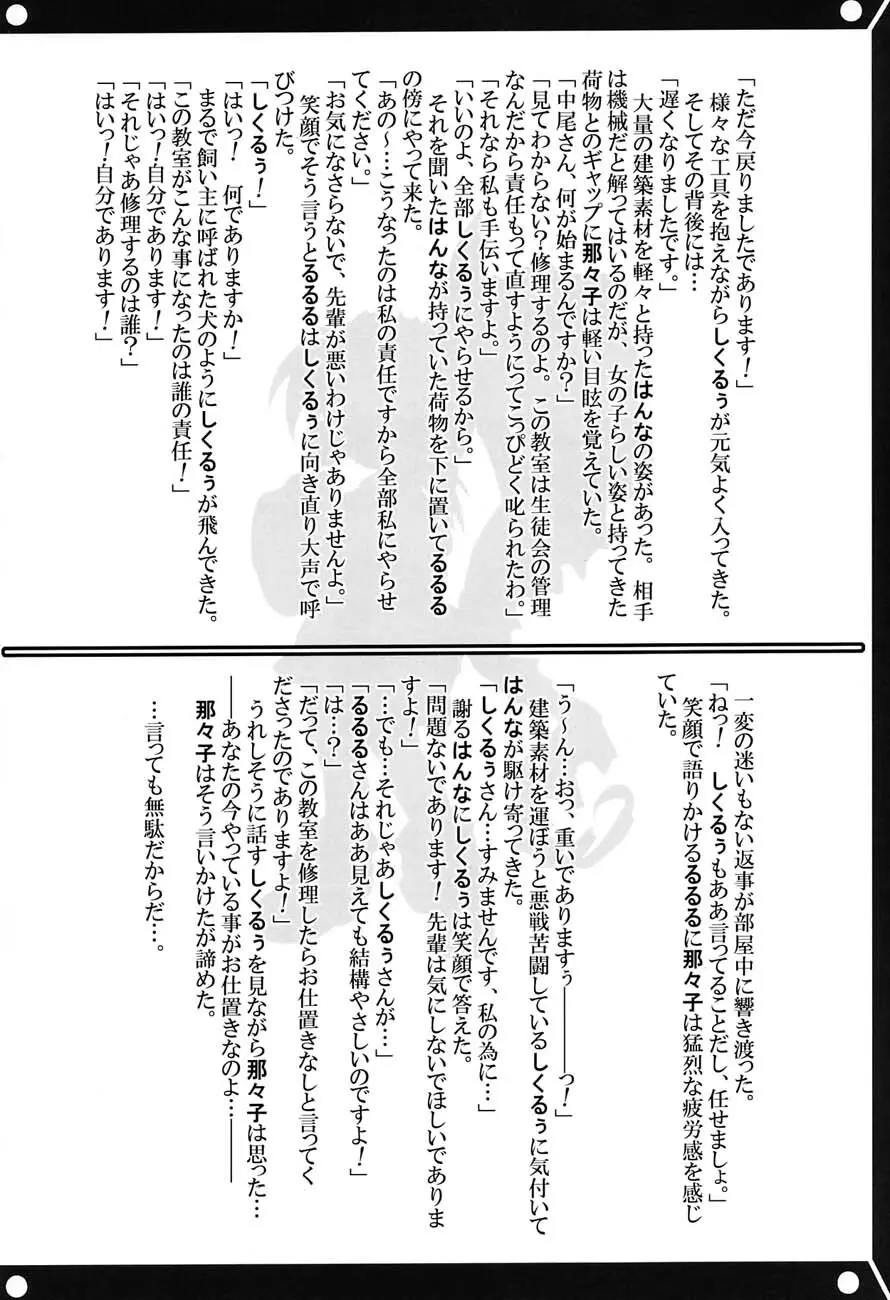 「ただ今戻りましたであります！」
　様々な工具を抱えながらしくるぅが元気よく入ってきた。
　そしてその背後には…
「遅くなりましたです。」
　大量の建築素材を軽々と持ったはんなの姿があった。相手
は機械だと解ってはいるのだが、女の子らしい姿と持ってきた
荷物とのギャップに那々子は軽い目眩を覚えていた。
「中尾さん、何が始まるんですか？」
「見てわからない？修理するのよ。この教室は生徒会の管理
なんだから責任もって直すようにってこっぴどく叱られたわ。」
「それなら私も手伝いますよ。」
「いいのよ、全部しくるぅにやらせるから。」
　それを聞いたはんなが持っていた荷物を下に置いてるるる
の傍にやって来た。
「あの〜…こうなったのは私の責任ですから全部私にやらせ
てください。」
「お気になさらないで、先輩が悪いわけじゃありませんよ。」
　笑顔でそう言うとるるるはしくるぅに向き直り大声で呼
びつけた。
「しくるぅ！」
「はいっ！　何でありますか！」
　まるで飼い主に呼ばれた犬のようにしくるぅが飛んできた。
「この教室がこんな事になったのは誰の責任！」
「はいっ！自分であります！」
「それじゃあ修理するのは誰？」
「はいっ！自分であります！」
　一変の迷いもない返事が部屋中に響き渡った。
「ねっ！　しくるぅもああ言ってることだし、任せましょ。」
　笑顔で語りかけるるるるに那々子は猛烈な疲労感を感じ
ていた。
「う〜ん…おっ、重いでありますぅ————っ！」
　建築素材を運ぼうと悪戦苦闘しているしくるぅに気付いて
はんなが駆け寄ってきた。
「しくるぅさん…すみませんです、私の為に…」
　謝るはんなにしくるぅは笑顔で答えた。
「問題ないであります！先輩は気にしないでほしいでありま
すよ！」
「…でも…それじゃあしくるぅさんが…」
「るるるさんはああ見えても結構やさしいのですよ！」
「は…？」
「だって、この教室を修理したらお仕置きなしと言ってく
ださったのでありますよ！」
　うれしそうに話すしくるぅを見ながら那々子は思った…
——あなたの今やっている事がお仕置きなのよ…——
　那々子はそう言いかけたが諦めた。
　…言っても無駄だからだ…。